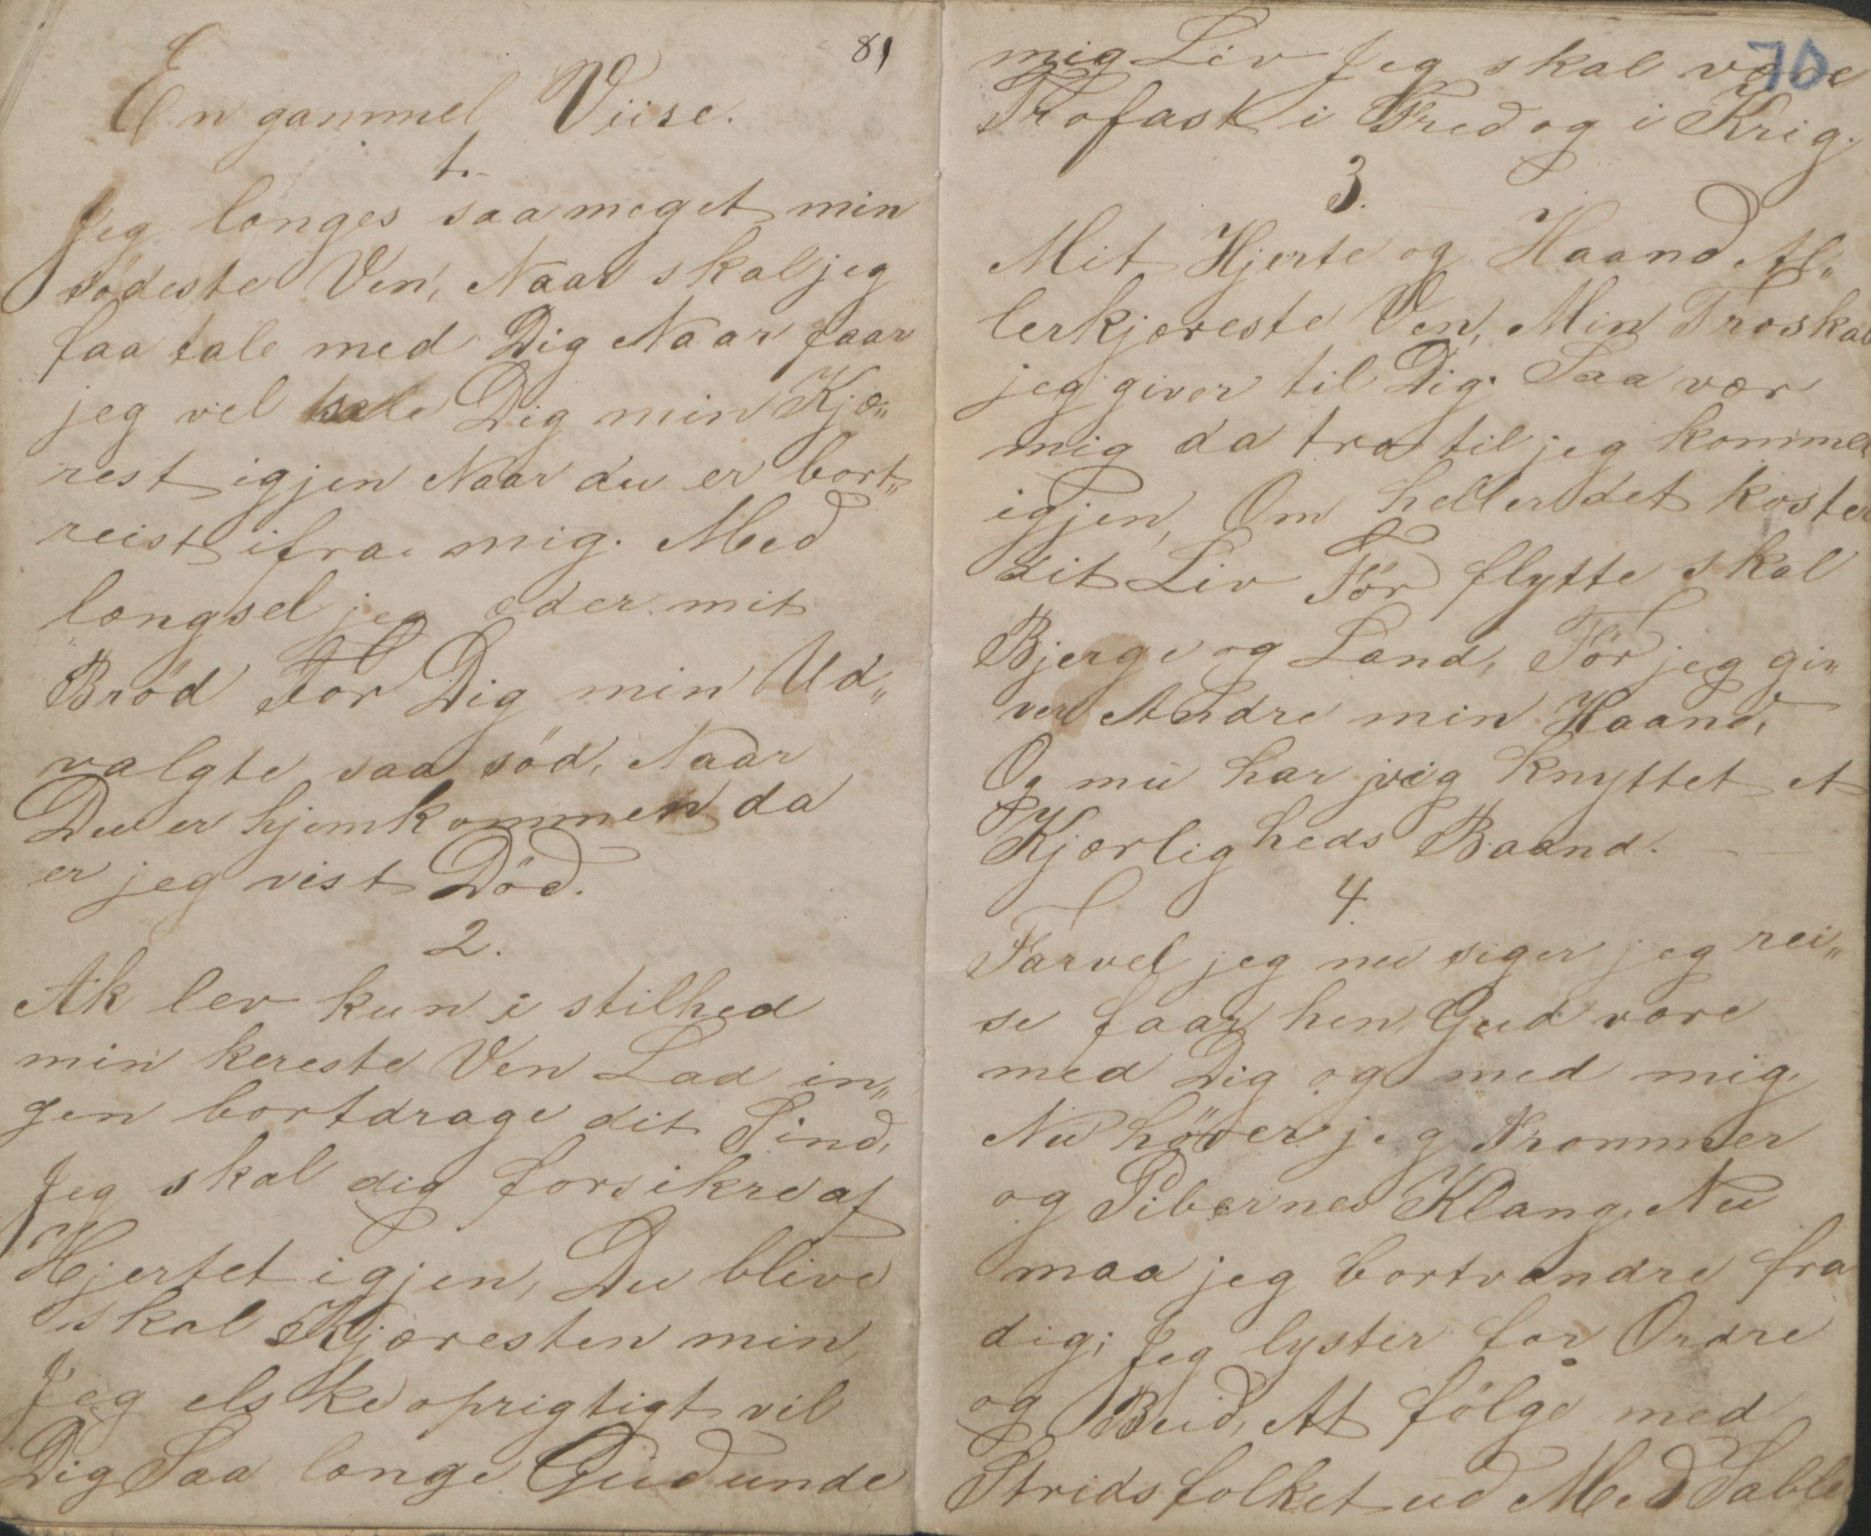 81
En gammel Viise.
1.
Jeg længes saa meget min
södeste Ven, Naar skal jeg
faa tale med Dig Naar faar
jeg vel tale Dig min Kjæ„
rest igjen Naar du er bort„
reist ifra mig. Med
længsel jeg æder mit
Bröd For Dig min Ud„
valgte saa söd, Naar
Du er hjemkommen da
er jeg vist Död.
2.
Ak lev kun i stilhed
min kereste Ven Lad in„
gen bortdrage dit Sind,
Jeg skal dig forsikre af
Hjertet igjen, Du blive
skal Kjæresten min,
Jeg elske oprigtigt vil
Dig Saa længe Gud unde
70
mig Liv Jeg skal være
Trofast i Fred og i Krig.
3.
Mit Hjerte og Haand Al„
lerkjæreste Ven, Min Troskab
jeg giver til Dig. Saa vær
mig da tro til jeg kommer
igjen, Om heller det koster
dit Liv För flytte skal
Bjerge og Land, För jeg gi„
ver Andre min Haand,
Og nu har jeg knyttet et
Kjærligheds Baand.
4.
Farvel jeg nu siger jeg rei„
se faar hen, Gud være
med Dig og med mig,
Nu hörer jeg Trommer
og Pibernes Klang, Nu
maa jeg bortvandre fra
dig; Jeg lyster for Ordre
og Bud, At fölge med
Stridsfolket ud Med Sable